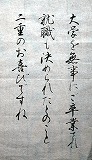 大学を無事にご卒業され
就職も決められたとのこと
二重のお喜びですね